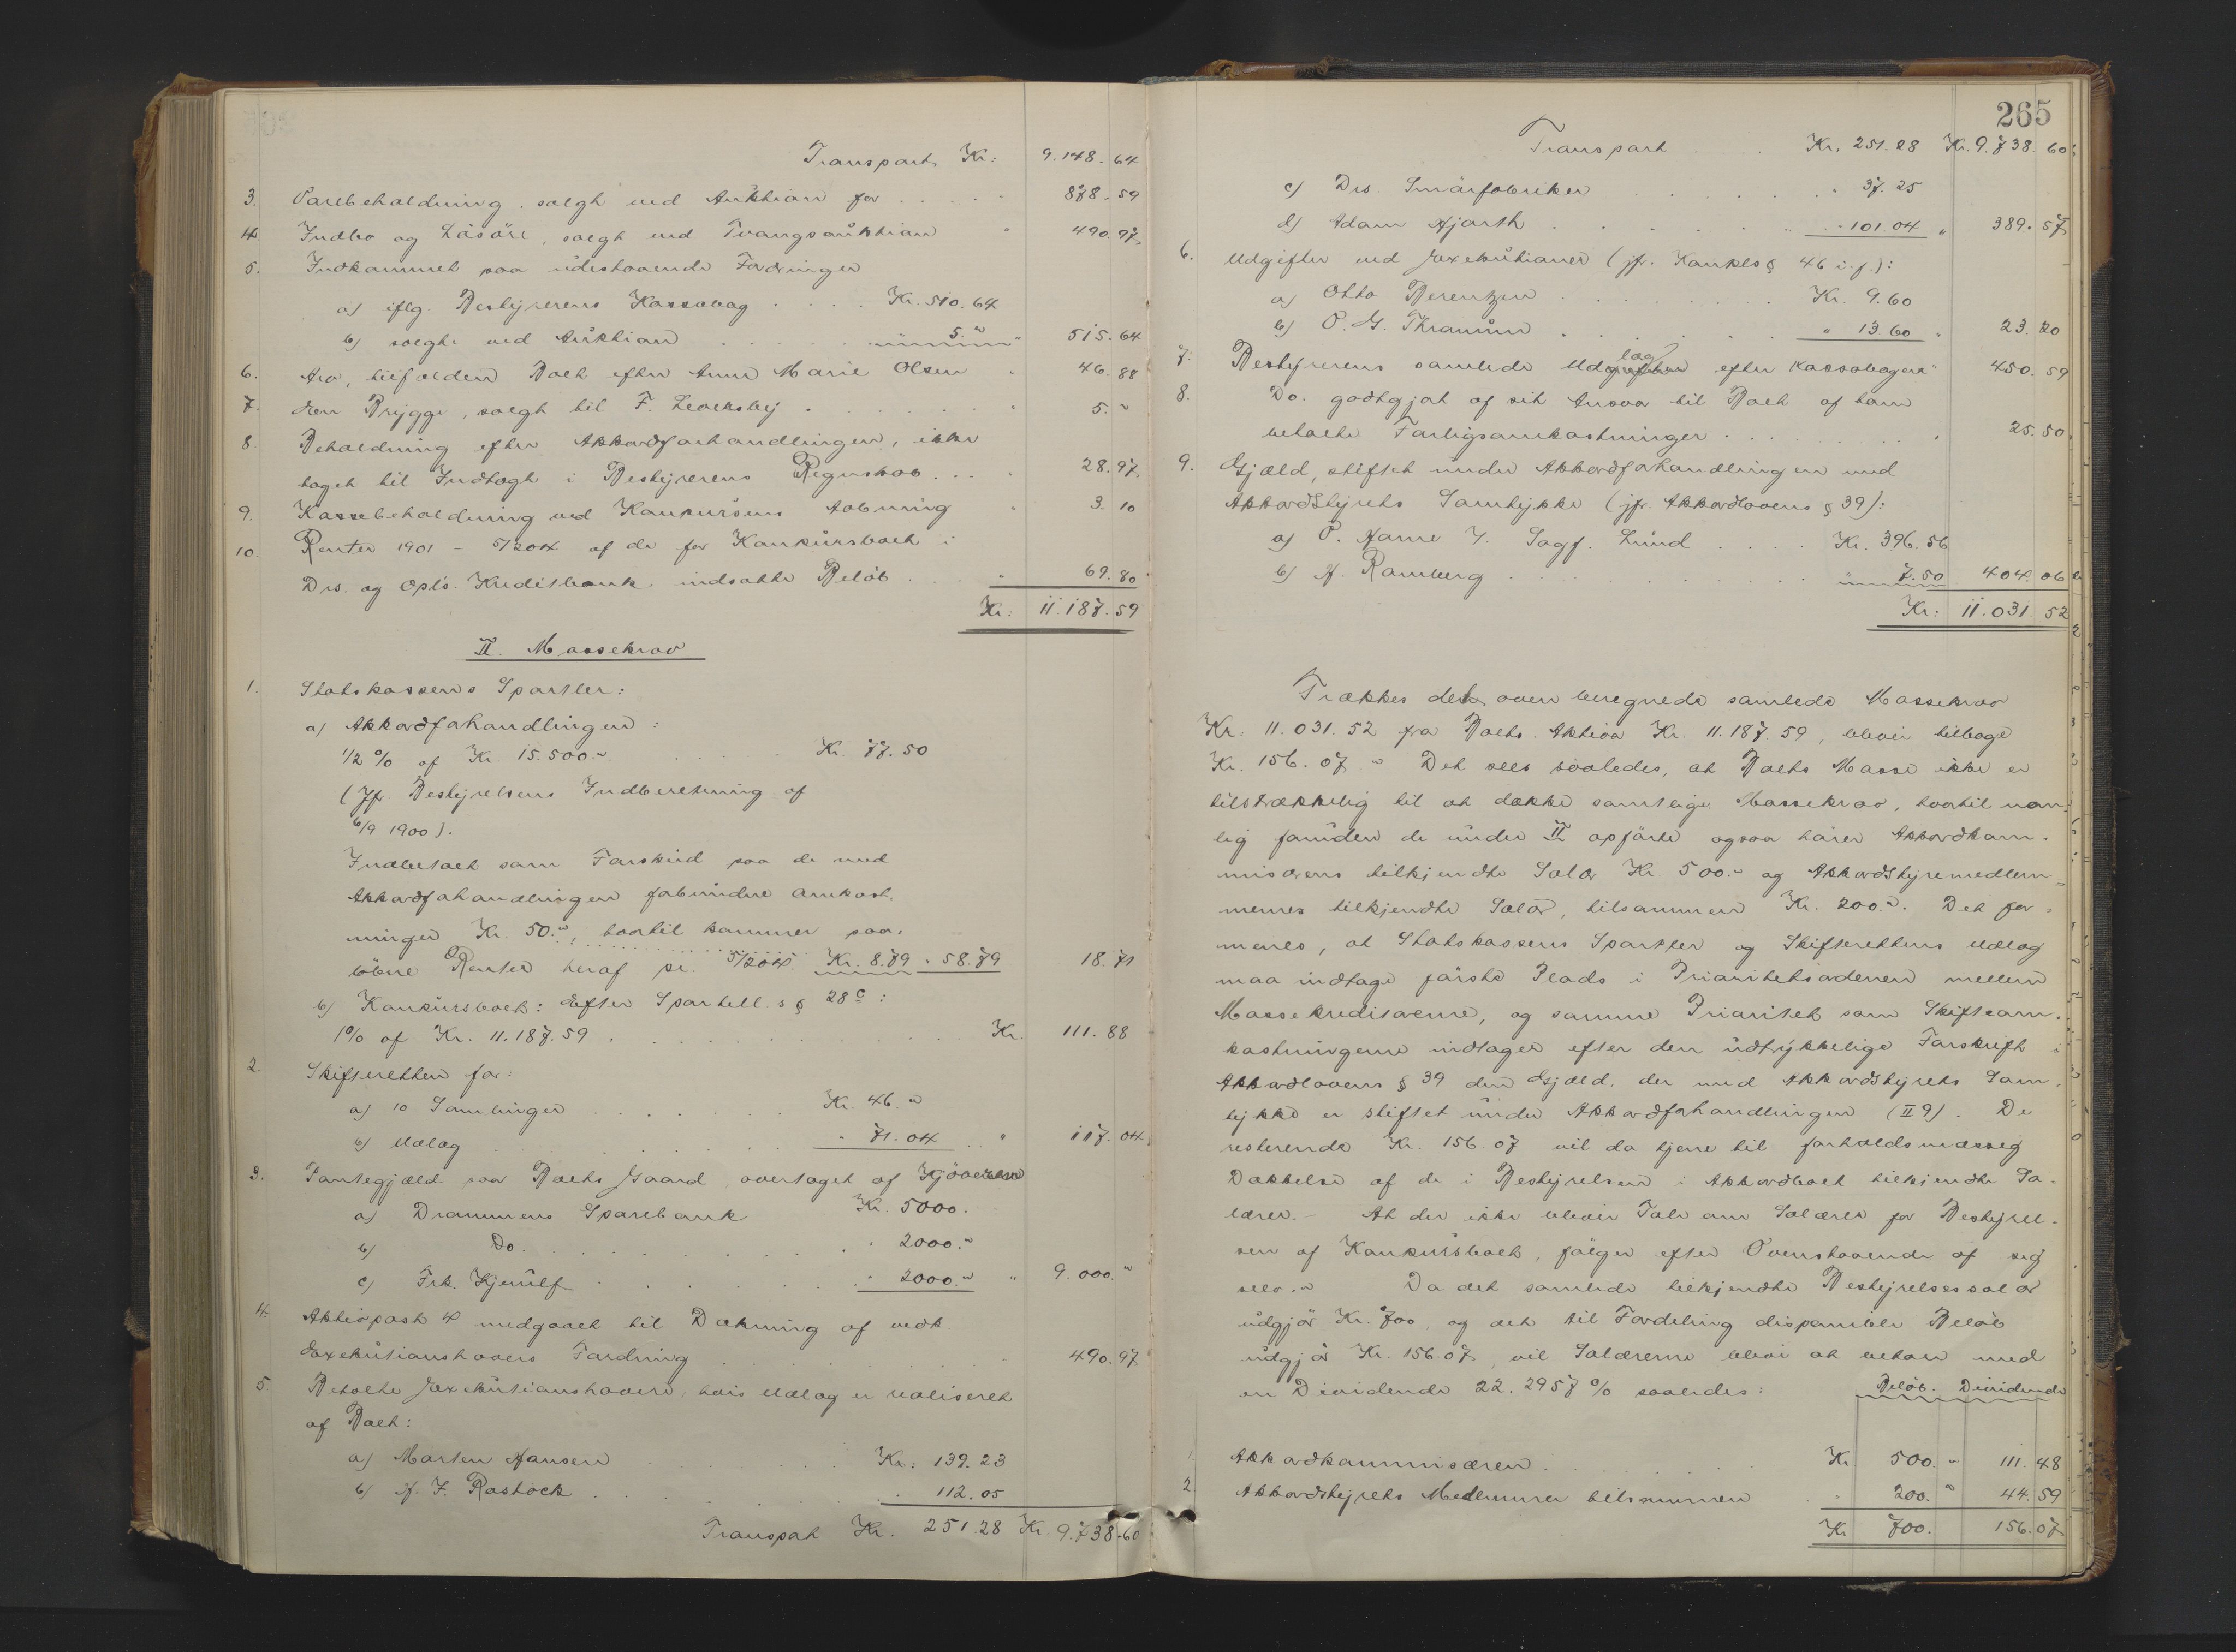 Transport Kr: 9.148.64
3. Varebeholdning, solgt ved Auktion for . . . . . 878.59
4. Indbo og Løsøre, solgt ved Tvangsauktion " 490.97
5. Indkommet paa udestaaende Fordringer
a) iflg. Bestyrerens Kassabog . . . . Kr. 510.64
b) solgte ved Auktion . . . . " 5." " 515.64
6. Arv, tilfalden Boet efter Anne Marie Olsen " 46.88
7. En Brygge, solgt til F. . . . . . " 5."
8. Beholdning efter Akkordforhandlingen, ikke
taget til Indtægt i Bestyrerens Regnskab . . . " 28.97
9. Kassebeholdning ved Konkursens Aabning " 3.10
10. Renter 1901 - 5/2 04 af de for Konkursboet i
Drs. og Opl's. Kreditbank indsatte Beløb . . . " 69.80
Kr: 11.187.59
II. Massekrav
1. Statskassens Sportler:
a) Akkordforhandlingen:
1/2 % af Kr. 15.500." . . . . . Kr. 77.50
(Jfr. Bestyrelsens Indberetning af
6/9 1900).
Indbetalt som Forskud paa de med
Akkordforhandlingen forbundne Omkost-
ninger Kr. 50.", hvortil kommer paa-
løbne Renter heraf pr. 5/2 04. Kr. 8.79 " 58.79 18.71
b) Konkursboet: Efter Sportell.s § 28 c:
1% af Kr. 11.187.59 . . . . . . . . Kr. 111.88
2. Skifteretten for:
a) 10 Samlinger . . . . . . Kr. 46."
b) Udlæg . . . . . . " 71.04 . . " 117.04
3. Pantegjæld paa Boets Gaard, overtaget af Kjøberen
a) Drammens Sparebank Kr. 5000.
b) Do. . . . . . . . " 2000."
c) Frk. Kjerulf . . . . . . " 2000." " 9.000."
4. Aktivpost 4 medgaaet til Dækning af vedk.
Exekutionshavers Fordring . . . . . . . . 490.97
5. Betalte Exekutionshavere, hvis Udlæg er realiseret
af Boet:
a) Morten Hansen . . . . . . Kr: 139.23
b) H. J. Rostock . . . . . . " 112.05
Transport Kr. 251.28 Kr. 9.738.60
265
Transport . . . . Kr. 251.28 Kr. 9.738.60
c) Drs. Smørfabriker . . . . . " 37.25
d) Adam Hjorth . . . . . . . " 101.04 " 389.57
6. Udgifter ved Exekutioner (jfr. Konkls § 46 i.f.):
a) Otto Berentzen . . . . . . . Kr. 9.60
b) P. G. . . . . . " 13.60 " 23.20
7. Bestyrerens samlede Udlæg efter Kassabogen " 450.59
8. Do. godtgjort af sit Ansvar til Boet af ham
betalte Forligsomkostninger . . . . . . . . . " 25.50
9. Gjæld, stiftet under Akkordforhandlingen med
Akkordstyrets Samtykke (jfr. Akkordlovens § 39):
a) P. Hanne Y. Sagf. Lund . . . . Kr. 396.56
b) H. Ramberg . . . . . . . . " 7.50 404.06
Kr: 11.031.52
Trækkes det oven beregnede samlede Massekrav
Kr. 11.031.52 fra Boets Aktiva Kr. 11.187.59, bliver tilbage
Kr. 156.07." Det sees saaledes, at Boets Masse ikke er
tilstrækkelig til at dække samtlige Massekrav, hvortil nem-
lig foruden de under II opførte ogsaa hører Akkordkom-
misærens tilkjendte Salær Kr. 500." og Akkordstyremedlem-
mernes tilkjendte Salær, tilsammen Kr. 200.". Det for-
menes, at Statskassens Sportler og Skifterettens Udlæg
maa indtage første Plads i Prioritetsordenen mellem
Massekreditorerne, og samme Prioritet som Skifteom-
kostningerne indtager efter den udtrykkelige Forskrift i
Akkordlovens § 39 den Gjæld, der med Akkordstyrets Sam-
tykke er stiftet under Akkordforhandlingen (II 9). De
resterende Kr. 156.07 vil da tjene til forholdsmæssig
Dækkelse af de i Bestyrelsen i Akkordboet tilkjendte Sa-
lærer. - At der ikke bliver Tale om Salærer for Bestyrel-
sen af Konkursboet, følger efter Ovenstaaende af sig
selv." Da det samlede tilkjendte Bestyrelsessalær
udgjør Kr. 700, og det til Fordeling disponible Beløb
udgjør Kr. 156.07, vil Salærerne blive at betale med
en Dividende 22.2957 % saaledes: Beløb. Dividende
1 Akkordkommisæren . . . . . Kr 500." 111.48
2 Akkordstyrets Medlemmer tilsammen . " 200." 44.59
Kr 700. 156.07